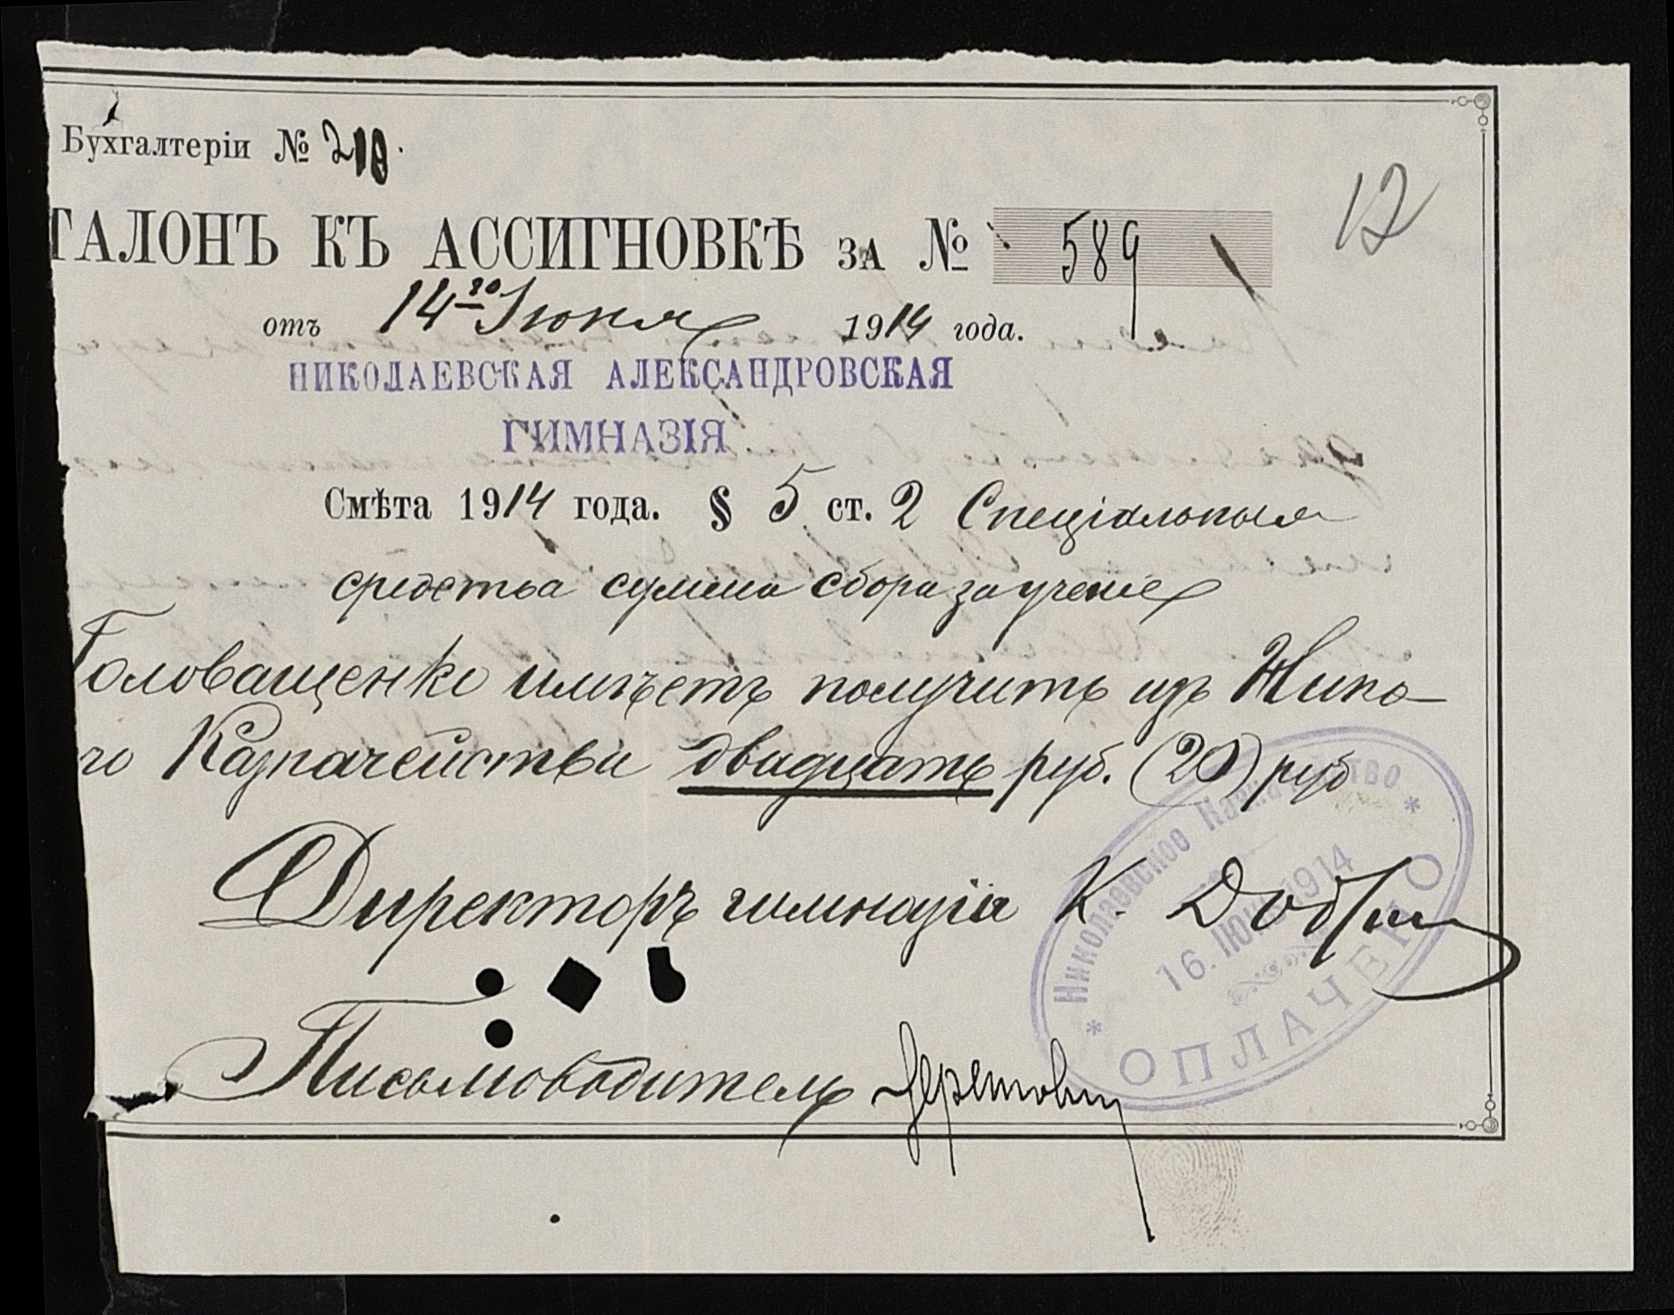 Бухгалтеріи № 210.
12
ТАЛОНЪ КЪ АССИГНОВКѢ за № 589
отъ 14го Іюня 1914 года.
НИКОЛАЕВСКАЯ АЛЕКСАНДРОВСКАЯ
ГИМНАЗІЯ
Смѣта 1914 года. § 5 ст. 2 Спеціальныя
средства сумма сбора за ученіе
Головащенко имѣетъ получить изъ Нико-
го Казначейства двадцать руб. (20) руб
Директоръ гимназіи К. 
Письмоводитель
Николаевское Казначейство
16. ІЮН 1914
ОПЛАЧЕНО